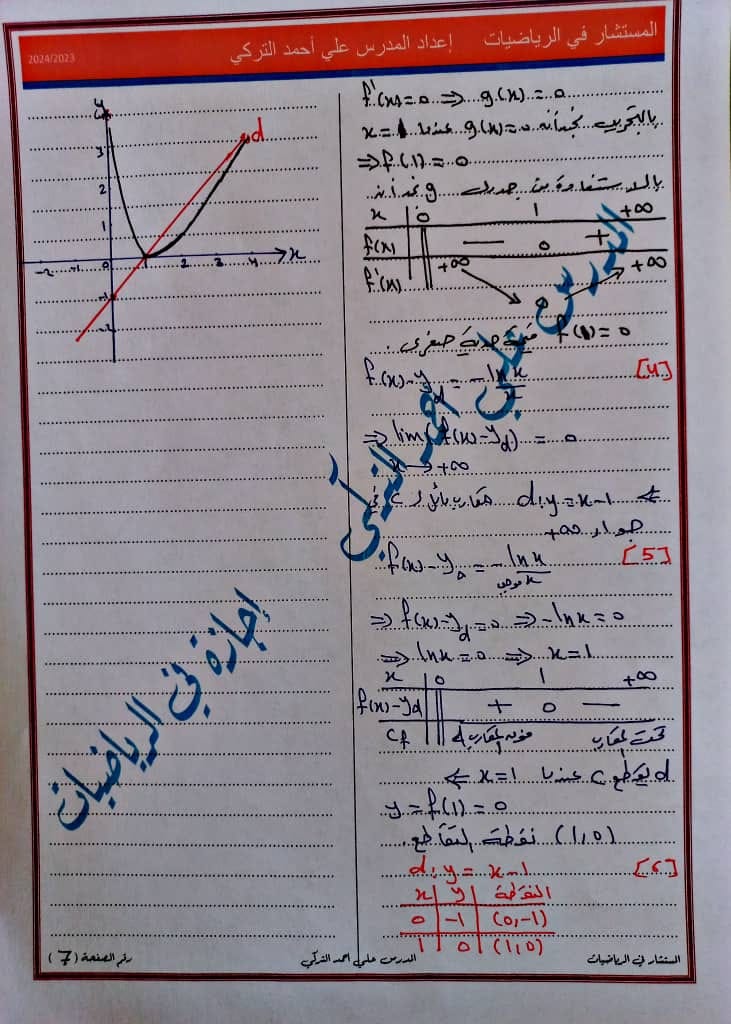 المستشار في الرياضيات إعداد المدرس علي أحمد التركي 2024/2023
f'(x) = 0 ⇒ g(x) = 0
بالتجريب نجد أنه g(x) = 0 عندما x = 1
⇒ f(1) = 0
بالاستفادة من جدول g نجد أنه
x 0 1 +∞
f(x) − 0 +
f'(x) +∞ 0 +∞
f(1) = 0 قيمة حدية صغرى.
[4] f(x) - y_d = -ln x / x
⇒ lim (f(x) - y_d) = 0
x → +∞
⇐ d: y = x - 1 مقارب مائل لـ C في
جوار +∞
[5] f(x) - y_d = -ln x / x موجب
⇒ f(x) - y_d = 0 ⇒ -ln x = 0
⇒ ln x = 0 ⇒ x = 1
x 0 1 +∞
f(x) - y_d + 0 −
C_f فوق المقارب d تحت المقارب
d يقطع C عندما x = 1 ⇐
y = f(1) = 0
(1,0) نقطة التقاطع.
[6] d: y = x - 1
x y النقطة
0 -1 (0,-1)
1 0 (1,0)
y
3
2
1
-2 -1 0 1 2 3 4 x
-1
-2
d
المدرس علي أحمد التركي
إجازة في الرياضيات
المستشار في الرياضيات المدرس علي احمد التركي رقم الصفحة (7)